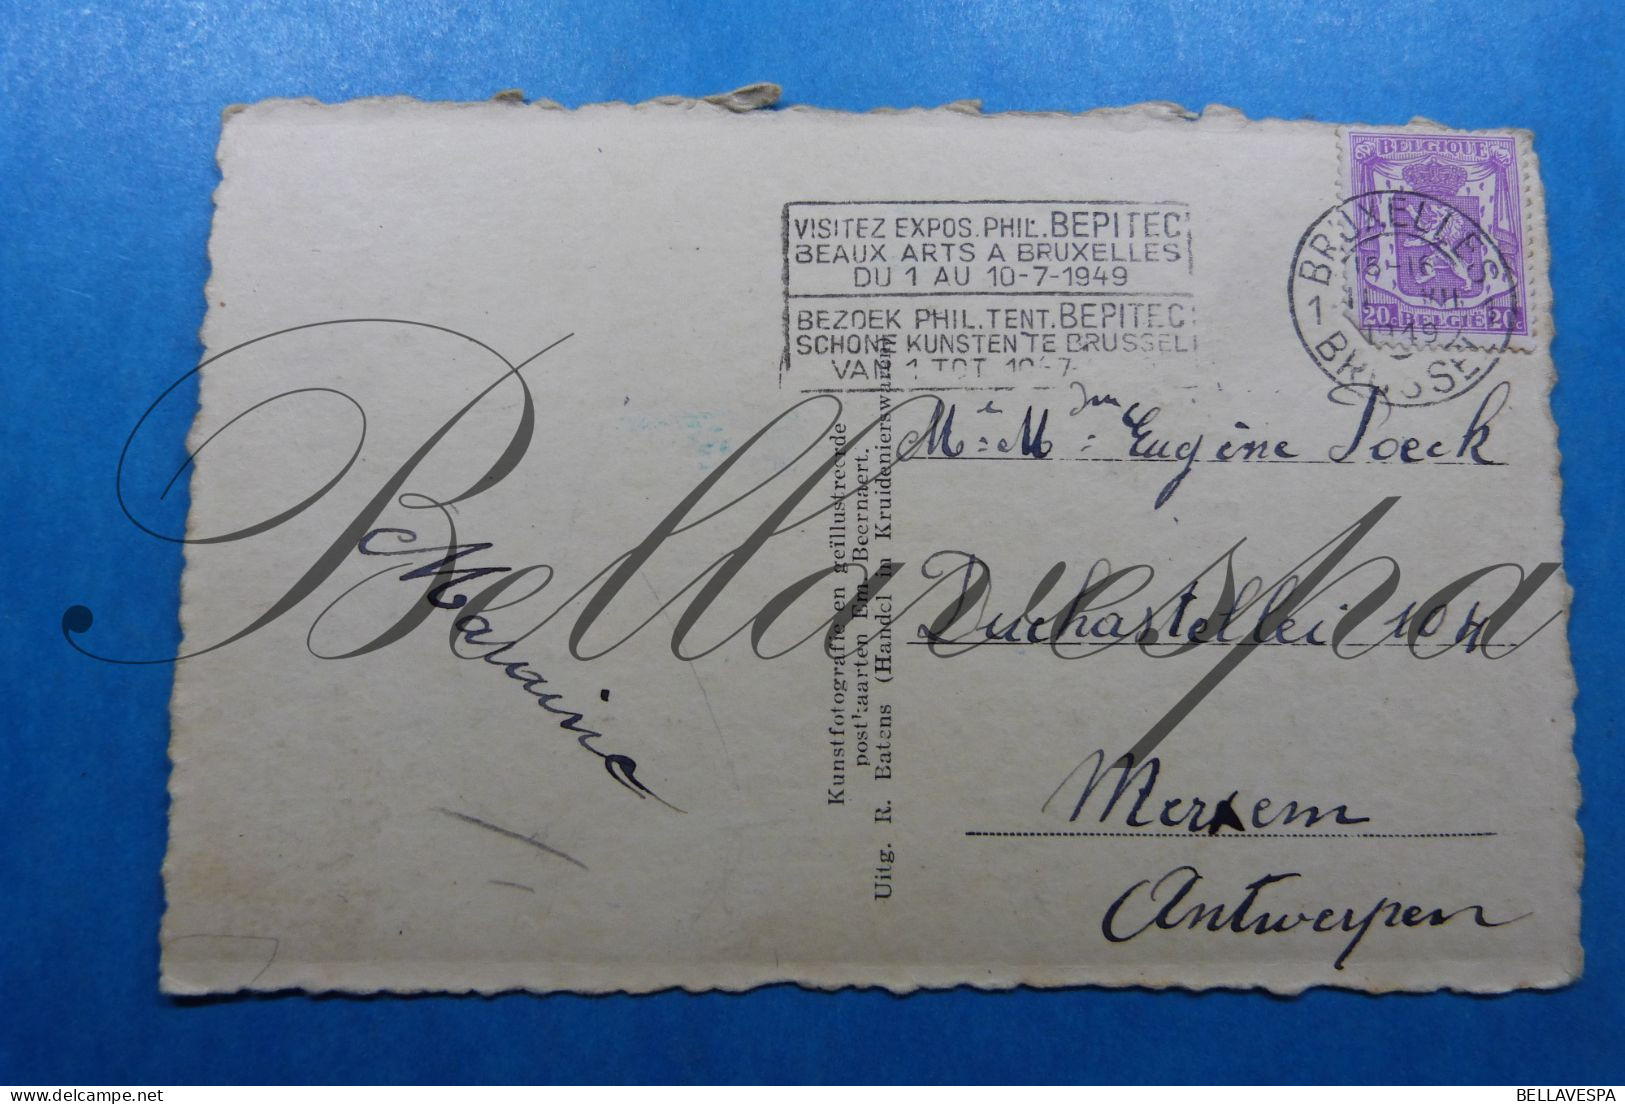 BELGIQUE
20c BELGIE 20c
BRUXELLES
1949
1 BRUSSEL 1
VISITEZ EXPOS. PHIL. BEPITEC
BEAUX ARTS A BRUXELLES
DU 1 AU 10-7-1949
BEZOEK PHIL. TENT. BEPITEC
SCHONE KUNSTEN TE BRUSSEL
VAN 1 TOT 10-7-
Marraine
Kunstfotografie en geïllustreerde
postkaarten Em. Beernaert.
Uitg. R. Batens (Handel in Kruidenierswaren)
Eugène Poeck
Duchastellei 104
Merxem
Antwerpen
Bellavespa
BELLAVESPA